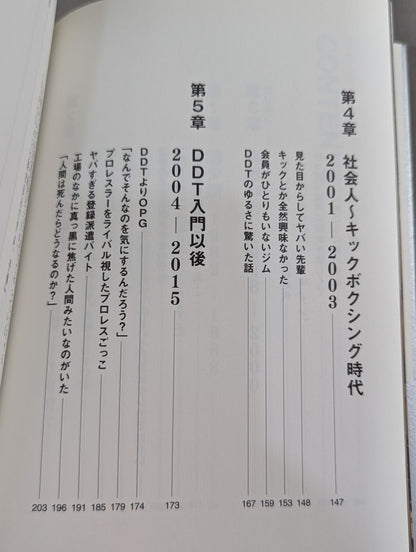 第4章 社会人〜キックボクシング時代
2001―2003 147
見た目からしてヤバい先輩 148
キックとか全然興味なかった 153
会員がひとりもいないジム 159
DDTのゆるさに驚いた話 167
第5章 DDT入門以後
2004―2015 173
DDTよりOPG 174
「なんでそんなのを気にするんだろう？」 179
プロレスラーをライバル視したプロレスごっこ 185
ヤバすぎる登録派遣バイト 191
工場のなかに真っ黒に焦げた人間みたいなのがいた 196
「人間は死んだらどうなるのか？」 203